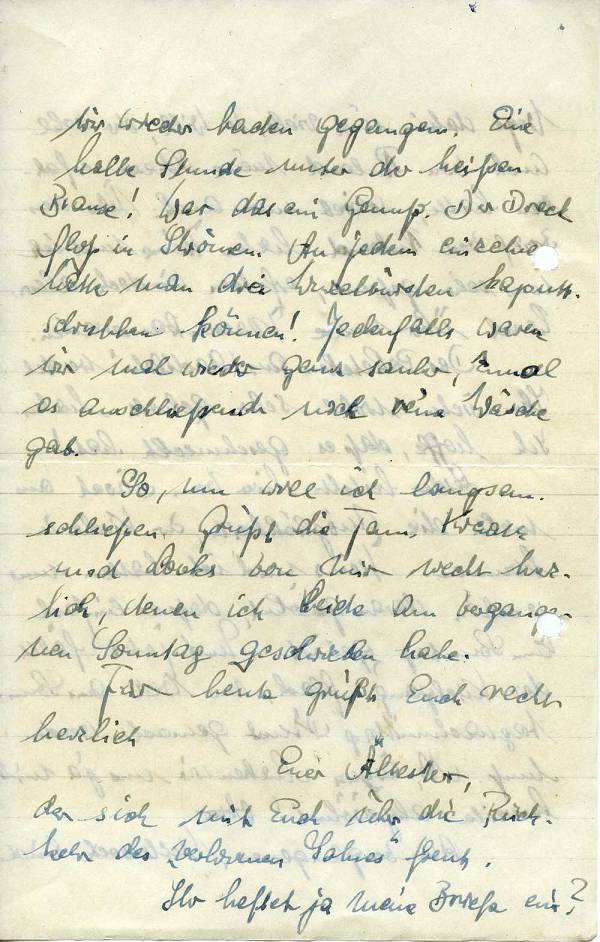 wir wieder baden gegangen. Eine
halbe Stunde unter der heißen
Brause! War das ein Genuß. Der Dreck
floß in Strömen. An jedem einzelnen
hätte man drei Wurzelbürsten kaputt-
schrubben können! Jedenfalls waren
wir mal wieder ganz sauber, zumal
es anschließend noch reine Wäsche
gab.
So, nun will ich langsam
schließen. Grüßt die Fam.
und Dooks von mir recht herz-
lich, denen ich beide am vergange-
nen Sonntag geschrieben habe.
Für heute grüßt Euch recht
herzlich
Euer Ältester,
der sich mit Euch über die Rück-
kehr des "verlorenen Sohnes" freut.
Ihr heftet ja meine Briefe ein?